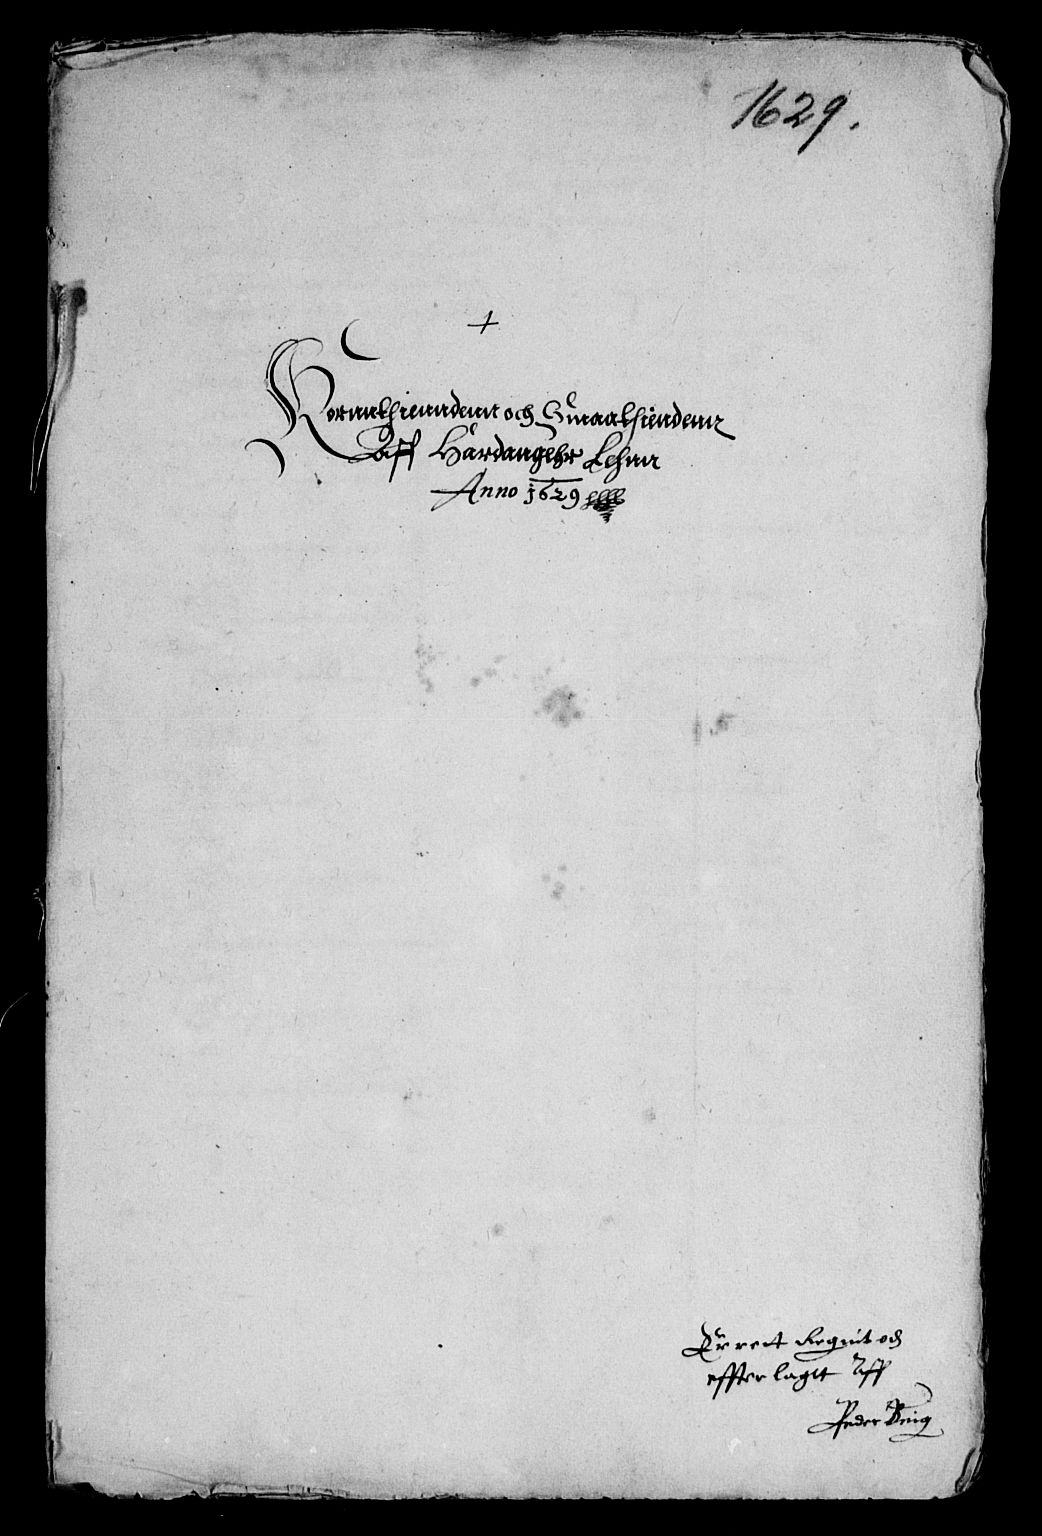 1629.
+
Kornnthienndenn och Smaathiendenn
Aff Hardangehr Lehnn
Anno 1629
Er rett Regnit och
effterlagtt Aff
Peder